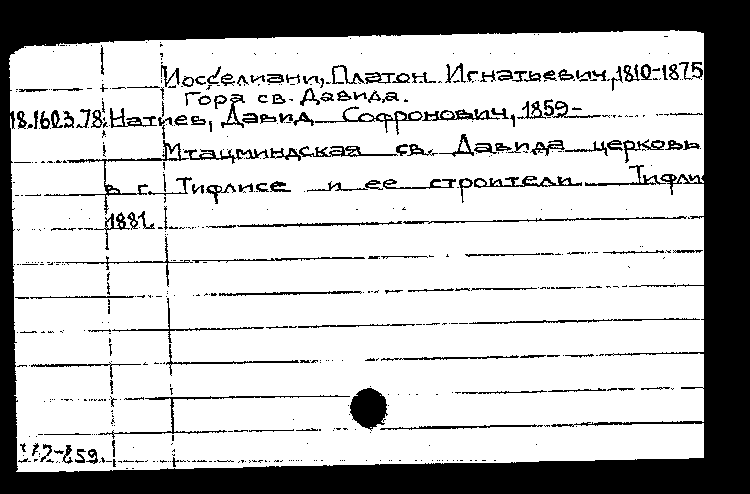 Иосселиани, Платон Игнатьевич, 1810-1875
Гора св. Давида.
18.1603.78. Натиев, Давид Софронович, 1859-
Мтацминдская св. Давида церковь
в г. Тифлисе и ее строители Тифли
1881.